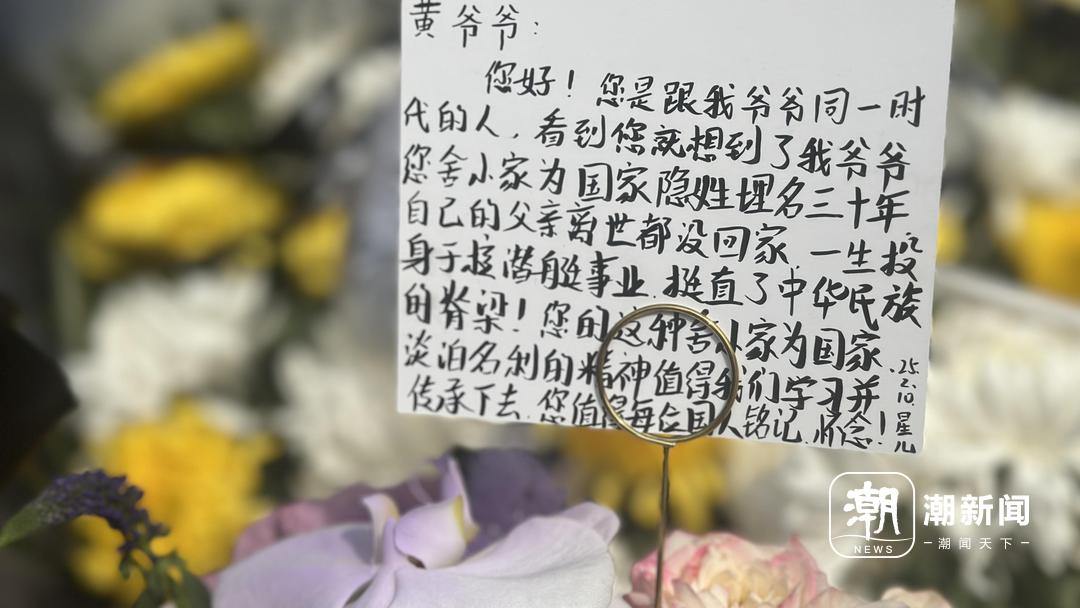 黄爷爷：
您好！您是跟我爷爷同一时
代的人，看到您就想到了我爷爷
您舍小家为国家隐姓埋名三十年，
自己的父亲离世都没回家，一生投
身于核潜艇事业，挺直了中华民族
的脊梁！您的这种舍小家为国家、
淡泊名利的精神值得我们学习并
传承下去，您值得每位国人铭记、怀念！
25.
2.
10.
星
儿
潮
NEWS
潮新闻
潮闻天下